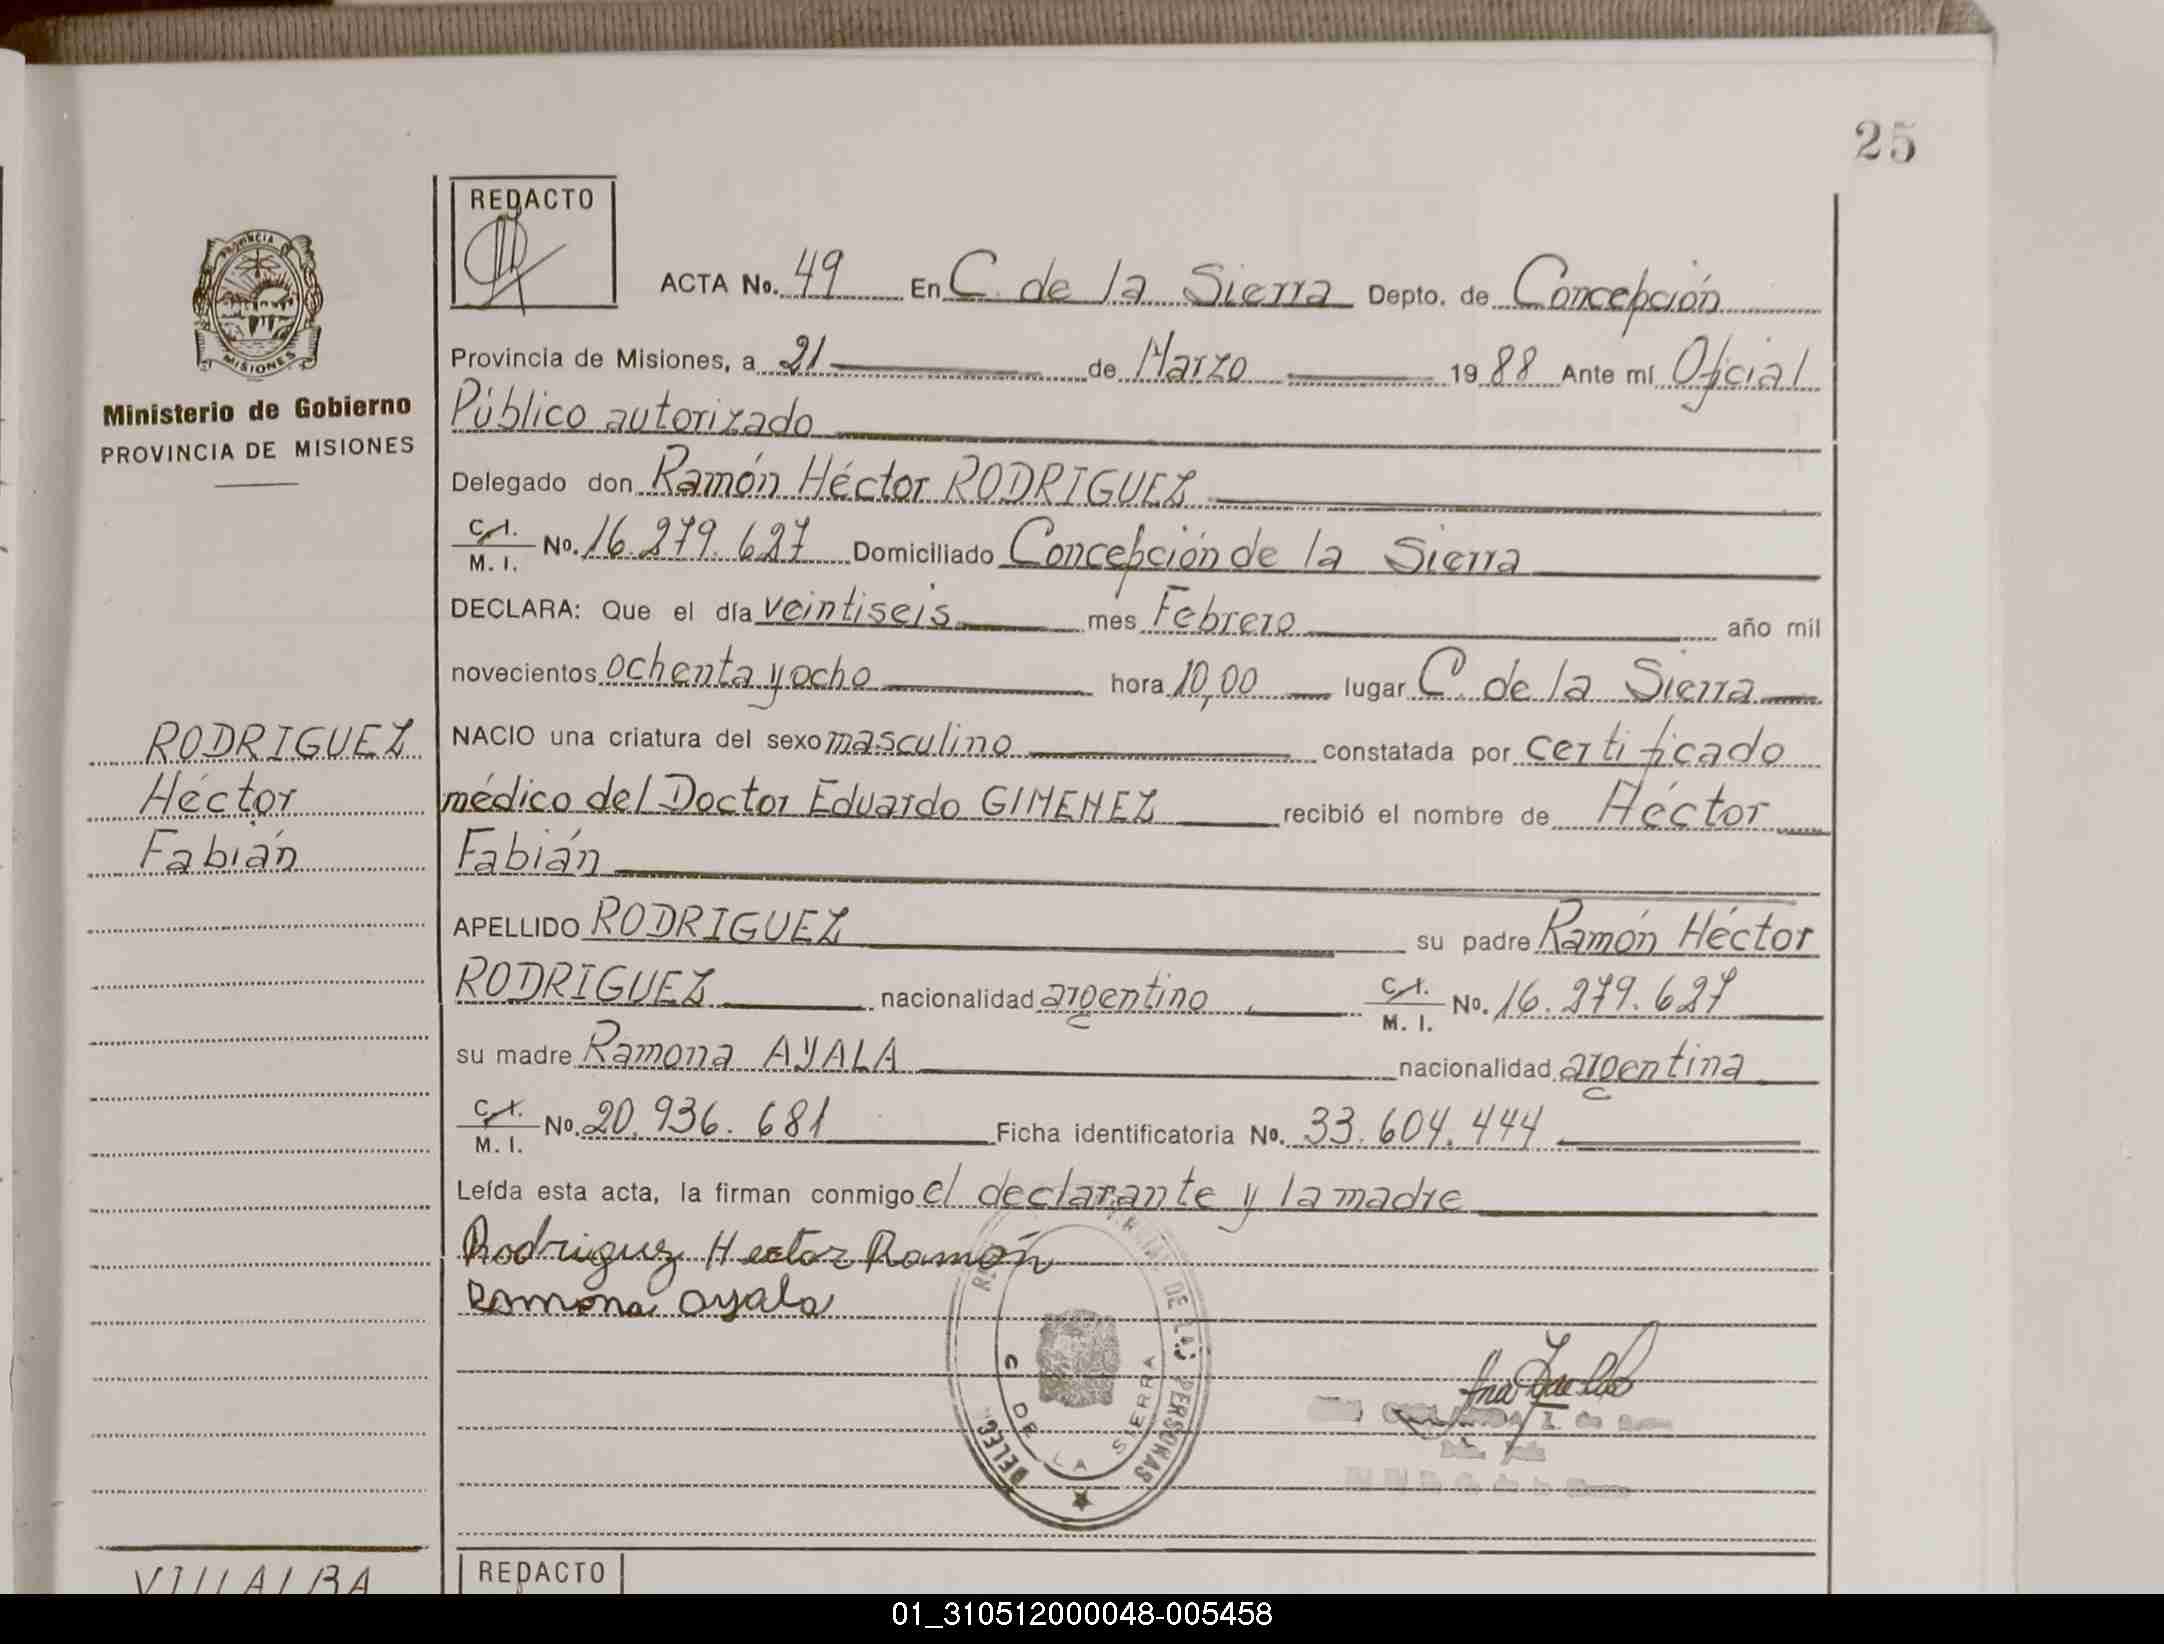 25
REDACTO
PROVINCIA
MISIONES
ACTA No. 49 En C. de la Sierra Depto. de Concepción
Provincia de Misiones, a 21 de Marzo 1988 Ante mí Oficial
Ministerio de Gobierno
PROVINCIA DE MISIONES
Público autorizado
Delegado don Ramón Héctor RODRIGUEZ
C.I. M.I. No. 16.279.627 Domiciliado Concepción de la Sierra
DECLARA: Que el día veintiseis mes Febrero año mil
novecientos ochenta y ocho hora 10,00 lugar C. de la Sierra
RODRIGUEZ
Héctor
Fabián
NACIO una criatura del sexo masculino constatada por certificado
médico del Doctor Eduardo GIMENEZ recibió el nombre de Héctor
Fabián
APELLIDO RODRIGUEZ su padre Ramón Héctor
RODRIGUEZ nacionalidad argentino C.I. M.I. No. 16.279.627
su madre Ramona AYALA nacionalidad argentina
C.I. M.I. No. 20.936.681 Ficha identificatoria No. 33.604.444
Leída esta acta, la firman conmigo el declarante y la madre
Rodriguez Hector Ramón
Ramona Ayala
DE LAS PERSONAS
DELEG.
C DE LA SIERRA
VILLALBA
REDACTO
01_310512000048-005458